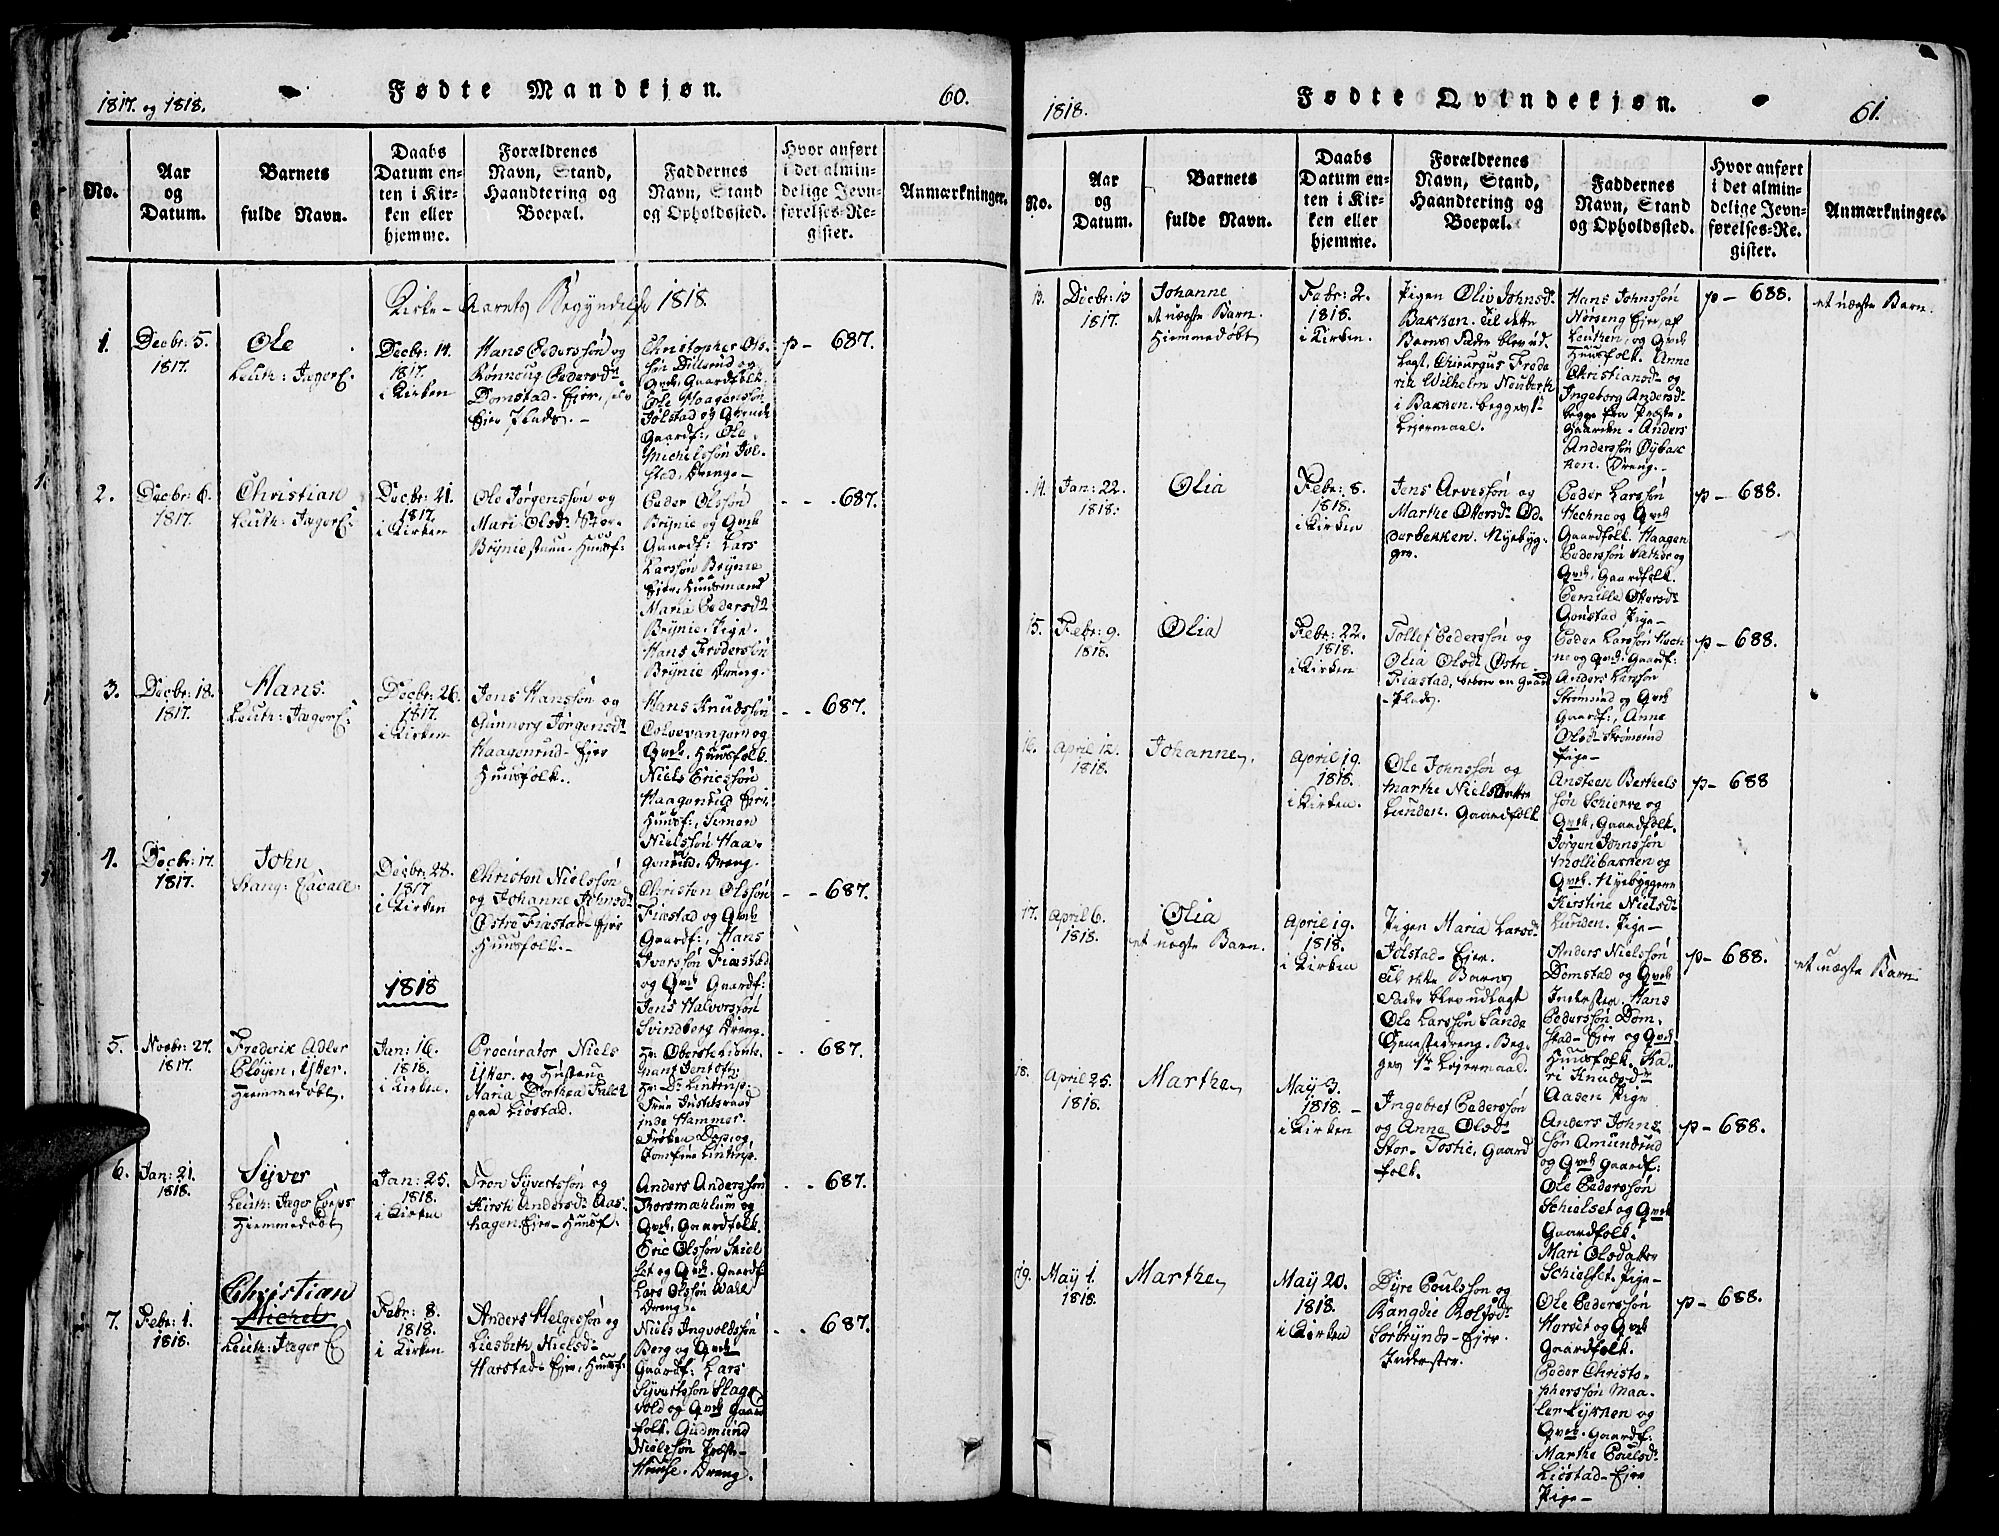 1817. og 1818.
Fødte Mandkjøn.
60.
No.
Aar
og
Datum.
Barnets
fulde Navn.
Daabs
Datum en-
ten i Kir-
ken eller
hjemme.
Forældrenes
Navn, Stand,
Haandtering og
Boepæl.
Faddernes
Navn, Stand
og Opholdssted.
Hvor anført
i det almin-
delige Jevn-
førelses-Re-
gister.
Anmærkninger.
Kirke-Aarets Begyndelse 1818.
1.
Decbr: 5.
1817.
Ole
Leuth: Jæger C.
Decbr: 14.
1817.
i Kirken
Hans Pederssøn og
Rønnoug Pedersd.
Domstad-Ejer,
Christopher Ols-
søn Dillerud og
Qvde, Gaardfolk.
Ole Haagenssøn
Jølstad og Qvinde
Gaardf:, Ole
Michelssøn Jøl-
stad, Dreng-
p- 687.
2.
Decbr: 6.
1817.
Christian
Leuth: Jæger C.
Decbr: 21.
1817.
i Kirken
Ole Jørgenssøn og
Mari Olsd.
Brynie Huusf:
Peder Olssøn
Brynie og Qvde
Gaardf: Lars
Larssøn Brynie
Ejer, Huusmand
Maria Pedersd.
Brynie. Pige.
Hans Frederssøn
Brynie Dreng.
- - 687.
3.
Decbr: 18.
1817.
Hans.
Leuth: Jæger C.
Decbr: 26.
1817.
i Kirken
Jens Hanssøn og
Gunnorg Jørgensd.
Haagenrud-Ejer
Huusfolk.
Hans Knudssøn
og
Qvde. Huusfolk.
Niels Ericssøn
Haagenrud Ejer,
Huusf:, Simon
Nielssøn Haa-
genrud. Dreng.
- - 687.
4.
Decbr: 17.
1817.
John
Stang:
Decbr: 28.
1817.
i Kirken
Christen Nielssøn
og Johanne Johnsd.
Østre Fiæstad-Ejer
Huusfolk.-
Christen Olssøn
Fiæstad og Qvde
Gaardf:, Hans
Iverssøn Fiæstad
og Qvde Gaardf:
Jens Halvorssøn
Svindberg Dreng.
- - 687.
1818
5.
Novbr: 27.
1817.
Frederik Adler
Pløyen, Isker.
Hiemmedøbt.
Jan: 16.
1818.
i Kirken.
Procurator Niels
Isker. og Hustrue
Maria Dorthea Falch
paa Liøstad.
Hr: Oberste Lieute-
nant Jentoft;
Hr: Dr. Lintrup;
Frue Justitsraad
inde Hammer.
Frøken
Jomfrue Lintrup.
- - 687.
6.
Jan: 21.
1818.
Syver
Leuth: Jæger Corps
Hiemmedøbt
Jan: 25.
1818.
i Kirken
Tron Syvertssøn og
Kirsti Andersd. Aas-
hagen Ejer-Huusf:
Anders Anderssøn
Thorsmæhlum og
Qvde, Gaardfolk.
Eric Olssøn Skiel-
set og Qvde. Gaardf.
Lars Olssøn Wahl
Dreng.
- - 687.
7.
Febr: 1.
1818.
Christian
Michel
Leuth: Jæger C.
Febr: 8.
1818.
i Kirken
Anders Helgessøn og
Liesbeth Nielsd.
Harstad-Ejer, Huusf:
Niels Ingvoldssøn
Berg og Qvde
Gaardf: Lars
Syvertssøn Slags-
vold og Qvde Gaard
folk. Gudmund
Nielssøn Præste-
Huuse. Dreng.
- - 687.
1818.
Fødte Qvindekjøn.
61.
No.
Aar
og
Datum.
Barnets
fulde Navn.
Daabs
Datum en-
ten i Kir-
ken eller
hjemme.
Forældrenes
Navn, Stand,
Haandtering og
Boepæl.
Faddernes
Navn, Stand
og Opholdssted.
Hvor anført
i det almin-
delige Jevn-
førelses-Re-
gister.
Anmærkninger.
13.
Decbr: 13
1817.
Johanne
et uægte Barn.
Hiemmedøbt
Febr: 2.
1818.
i Kirken.
Pigen Oliv Johnsd.
Bakken. Til dette
Barns Fader blev ud
lagt, Chirurgus Frede
rik Wilhelm Neuberth
i Bakken. begges 1te
Leiermaal.
Hans Johnssøn
Nørseng Ejer, af
Leuthen, og Qvde
Huusfolk. Anne
Christiansd. og
Ingeborg Andersd.
begge fra Præste-
Gaarden. Anders
Anderssøn Øybak
ken. Dreng.-
p- 688.
et uægte Barn.
14.
Jan: 22.
1818.
Olia
Febr: 8.
1818.
i Kirken
Jens Arvessøn og
Marthe Ottersd. Od
derbekken. Nyebyg-
gere.
Peder Larssøn
Hechne og Qvde
Gaardfolk. Haagen
Pederssøn Sather og
Qvde, Gaardfolk.
Pernille Ottersd.
Gonstad, Pige-
p- 688.
15.
Febr: 9.
1818.
Olia
Febr: 22.
1818.
i Kirken
Tollef Pederssøn og
Olia Olsd. Østre
Fiæstad, beboer en Gaard
-Plads.
Peder Larssøn Hech
ne og Qvde. Gaardf:
Anders Larssøn
Strømsud og Qvde
Gaardf:, Anne
Olsd. Strømsud
Pige-
p- 688.
16.
April 12.
1818.
Johanne,
April 19.
1818.
i Kirken.
Ole Johnssøn og
Marthe Nielsdatter
Lunden. Gaardfolk
Ansteen Berthels
søn Schierve og
Qvde, Gaardfolk.
Jørgen Johnssøn
Mollibakken og
Qvde. Nyebyggere
Kirstine Nielsd.
Lunden. Pige-
p- 688
17.
April 6.
1818.
Olia
et uegte Barn.
April 19.
1818.
i Kirken
Pigen Maria Larsd.
Jølstad-Ejer.
Til dette Barns
Fader blev udlagt
Ole Larssøn Sande
Tienestedreng. Beg-
ges 1te Leiermaal.
Anders Nielssøn
Domstad og Qvde
Inderster. Hans
Pederssøn Dom,
stad-Ejer og Qvde
Huusfolk. Ka-
ri Knudsd.
Aasen Pige
p- 688.
et uægte Barn
18.
April 25.
1818.
Marthe,
May 3.
1818.
i Kirken
Ingebret Pederssøn
og Anne Olsd.
Stor-Tostie, Gaard
folk.
Anders Johns
søn Amundrud
og Qvde Gaardf:
Ole Pederssøn
Schielset og Qvde
Gaardfolk.
Mari Olsdatter
Schielset. Pige-
p- 688.
19.
May 1.
1818.
Marthe,
May 20.
1818.
i Kirken
Dyre Poulssøn og
Rangdie Rolfsd.
Sørbrynds-Ejer.
Inderster.
Ole Pederssøn
Horset og Qvde
Gaardfolk.
Peder Christo-
pherssøn Maa-
ler og
Qvde. Gaardf:
Marthe Poulsd.
Liøstad-Ejer
Pige-
p- 688.